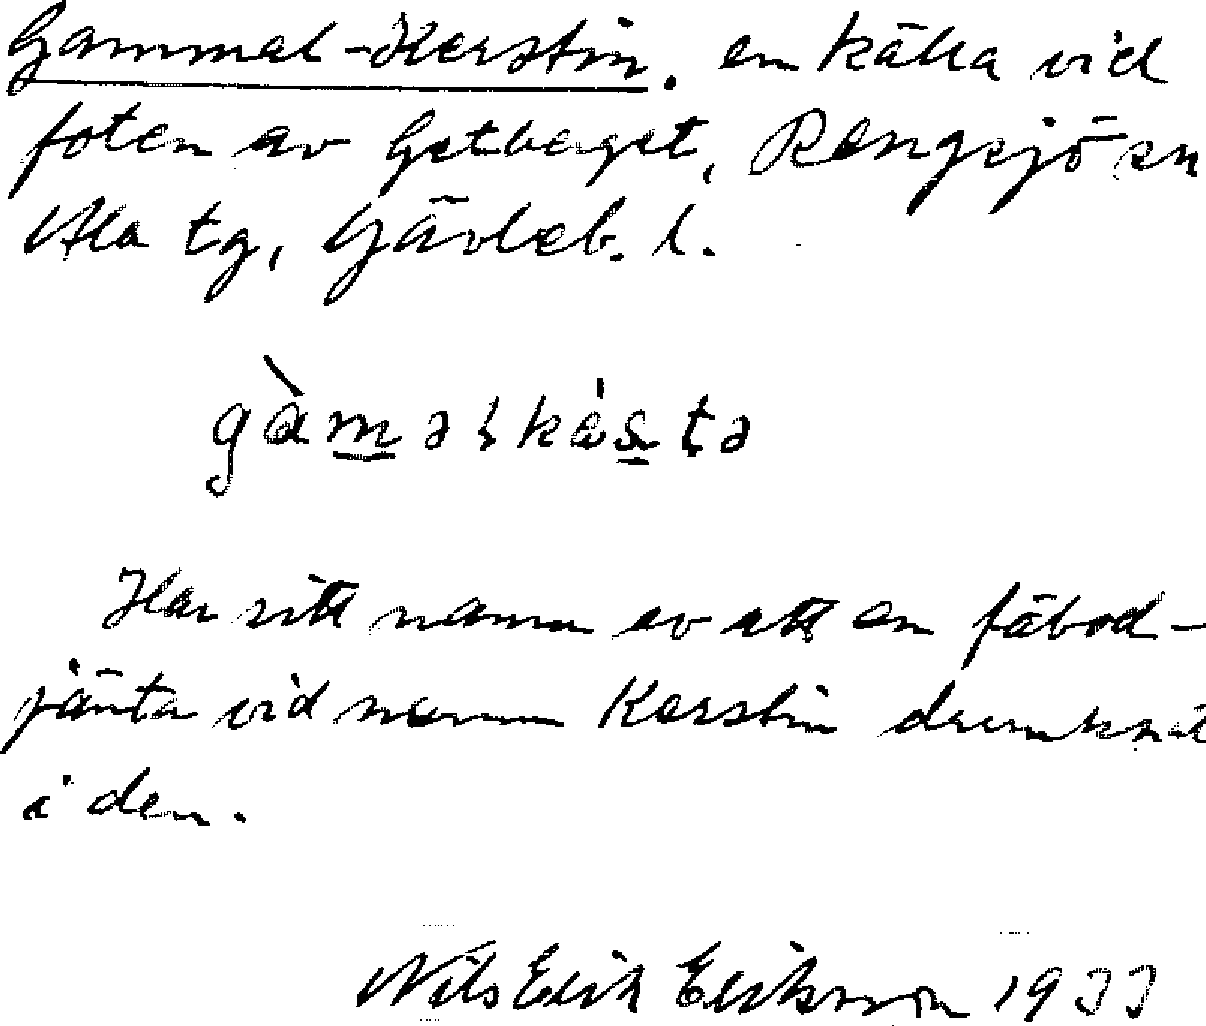 Gammal-Kerstin, en källa vid
foten av Getberget, Rengsjö sn
Ala tg, Gävleb. l.
gàməlkásta
Har sitt namn av att en fäbod-
jänta vid namn Kerstin drunknat
i den.
Nils Erik Eriksson 1933